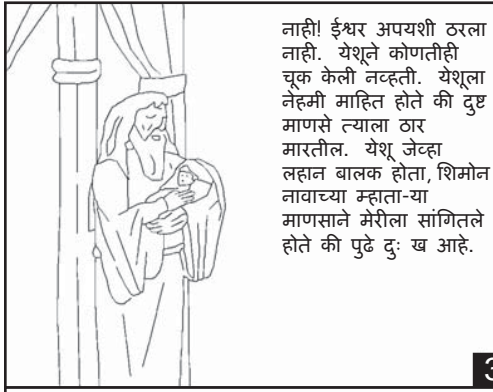 नाही! ईश्वर अपयशी ठरला
नाही. येशूने कोणतीही
चूक केली नव्हती. येशूला
नेहमी माहित होते की दुष्ट
माणसे त्याला ठार
मारतील. येशू जेव्हा
लहान बालक होता, शिमोन
नावाच्या म्हाता-या
माणसाने मेरीला सांगितले
होते की पुढे दुः ख आहे.
3